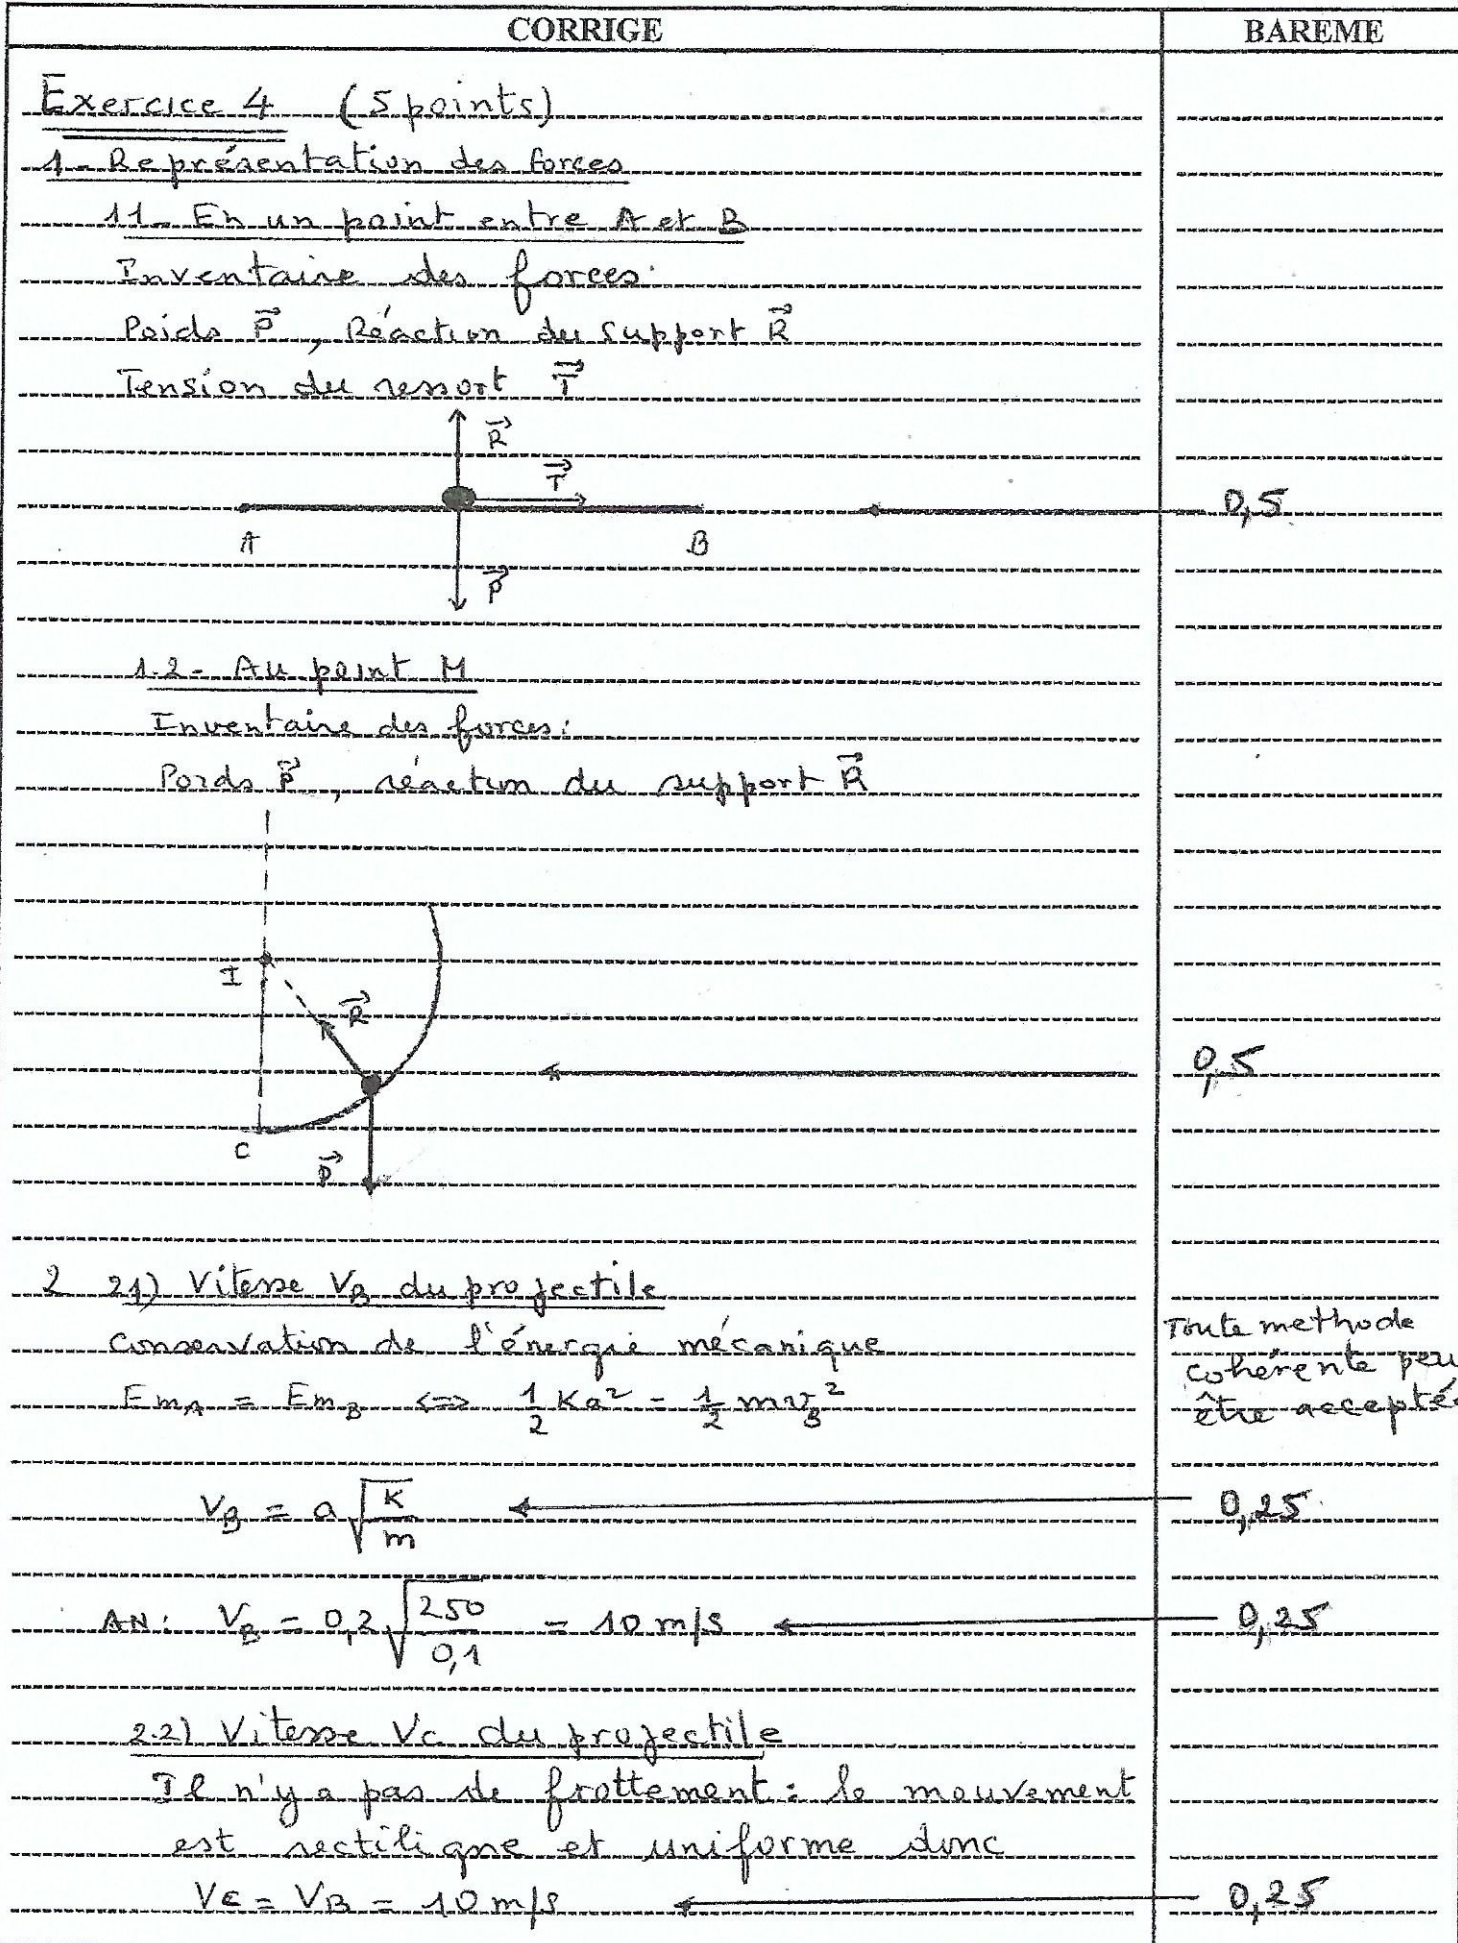 CORRIGE BAREME
Exercice 4 (5 points)
1- Représentation des forces
11- En un point entre A et B
Inventaire des forces:
Poids P⃗, Réaction du support R⃗
Tension du ressort T⃗
R⃗
T⃗
0,5
A B
P⃗
1.2- Au point M
Inventaire des forces:
Poids P⃗, réaction du support R⃗
I
R⃗
0,5
C
P⃗
2 21) Vitesse VB du projectile
Conservation de l'énergie mécanique
Toute methode
cohérente peu
être accepté
EmA = EmB <=> 1/2 Ka² = 1/2 mvB²
VB = a√(K/m) 0,25
AN: VB = 0,2√(250/0,1) = 10 m/s 0,25
2.2) Vitesse Vc du projectile
Il n'y a pas de frottement: le mouvement
est rectiligne et uniforme donc
Vc = VB = 10 m/s 0,25